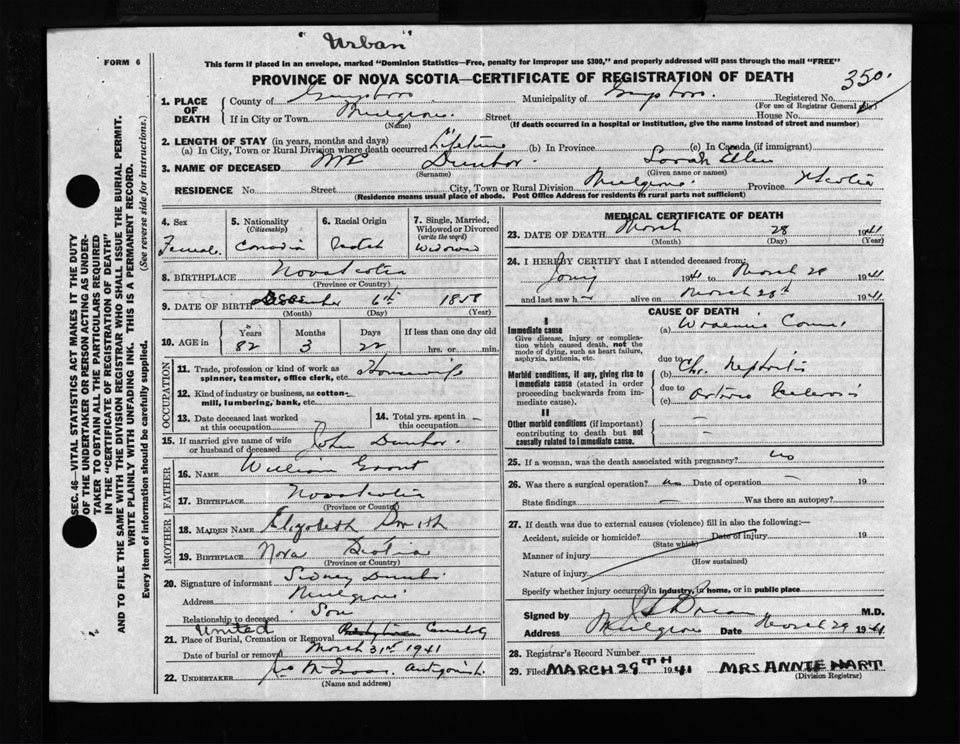 "Urban"
FORM 6
This form if placed in an envelope, marked "Dominion Statistics—Free, penalty for improper use $300," and properly addressed will pass through the mail "FREE"
PROVINCE OF NOVA SCOTIA—CERTIFICATE OF REGISTRATION OF DEATH
350.
1. PLACE OF DEATH
County of Guysboro Municipality of Guysboro. Registered No.
(For use of Registrar General only)
If in City or Town Mulgrave Street House No.
(Name) (If death occurred in a hospital or institution, give the name instead of street and number)
2. LENGTH OF STAY (in years, months and days)
(a) In City, Town or Rural Division where death occurred Lifetime (b) In Province (c) In Canada (if immigrant)
3. NAME OF DECEASED Mrs Dunbar Sarah Ellen
(Surname) (Given name or names)
RESIDENCE No. Street City, Town or Rural Division Mulgrave Province N Scotia
(Residence means usual place of abode. Post Office Address for residents in rural parts not sufficient)
4. Sex
Female
5. Nationality
(Citizenship)
6. Racial Origin
7. Single, Married, Widowed or Divorced
(write the word)
Widowed
8. BIRTHPLACE Nova Scotia
(Province or Country)
9. DATE OF BIRTH December 6th 1858
(Month) (Day) (Year)
10. AGE in
Years
82
Months
3
Days
22
If less than one day old
hrs. or min.
OCCUPATION
11. Trade, profession or kind of work as spinner, teamster, office clerk, etc. Housewife
12. Kind of industry or business, as cotton-mill, lumbering, bank, etc.
13. Date deceased last worked at this occupation
14. Total yrs. spent in this occupation –
15. If married give name of wife or husband of deceased John Dunbar.
FATHER
16. NAME William Grant
17. BIRTHPLACE Nova Scotia
(Province or Country)
MOTHER
18. MAIDEN NAME Elizabeth Smith
19. BIRTHPLACE Nova Scotia
(Province or Country)
20. Signature of informant Sidney Dunbar
Address Mulgrave
Relationship to deceased Son
United
21. Place of Burial, Cremation or Removal Presbyterian Cemetery
Date of burial or removal March 31st 1941
22. UNDERTAKER Antigonish.
(Name and address)
MEDICAL CERTIFICATE OF DEATH
23. DATE OF DEATH March 28 1941
(Month) (Day) (Year)
24. I HEREBY CERTIFY that I attended deceased from:
1941 to March 28 1941
and last saw h alive on March 28th 1941.
CAUSE OF DEATH
I
Immediate cause
Give disease, injury or complication which caused death, not the mode of dying, such as heart failure, asphyxia, asthenia, etc.
(a) Uraemic Coma.
due to
(b) Chr. Nephritis
Morbid conditions, if any, giving rise to immediate cause (stated in order proceeding backwards from immediate cause).
due to
(c) Arterio Sclerosis
II
Other morbid conditions (if important) contributing to death but not causally related to immediate cause.
25. If a woman, was the death associated with pregnancy? no
26. Was there a surgical operation? no Date of operation – 19
State findings – Was there an autopsy?
27. If death was due to external causes (violence) fill in also the following:—
Accident, suicide or homicide? Date of injury 19
(State which)
Manner of injury
(How sustained)
Nature of injury
Specify whether injury occurred in industry, in home, or in public place
Signed by M.D.
Address Mulgrave Date March 29 1941
28. Registrar's Record Number
29. Filed MARCH 29TH 1941 MRS ANNIE HART
(Division Registrar)
SEC. 46—VITAL STATISTICS ACT MAKES IT THE DUTY
OF THE UNDERTAKER OR PERSON ACTING AS UNDER-
TAKER TO OBTAIN ALL THE PARTICULARS REQUIRED
IN THE "CERTIFICATE OF REGISTRATION OF DEATH"
AND TO FILE THE SAME WITH THE DIVISION REGISTRAR WHO SHALL ISSUE THE BURIAL PERMIT.
WRITE PLAINLY WITH UNFADING INK. THIS IS A PERMANENT RECORD.
Every item of information should be carefully supplied. (See reverse side for instructions.)